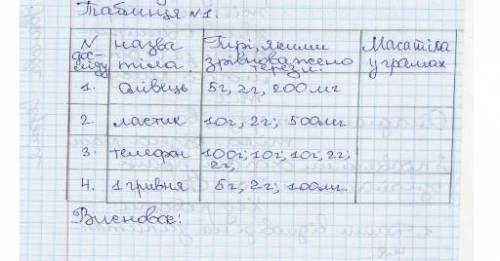 Таблиця №1.
N дос-ліду | назва тіла | Гирі, якими зрівноважено терези | Маса тіла у грамах
1. | олівець | 5г, 2г, 200мг
2 | ластик | 10г, 2г; 500мг
3. | телефон | 100г; 10г, 10г, 2г; 2г;
4. | 1 гривня | 5г, 2г; 100мг.
Висновок: